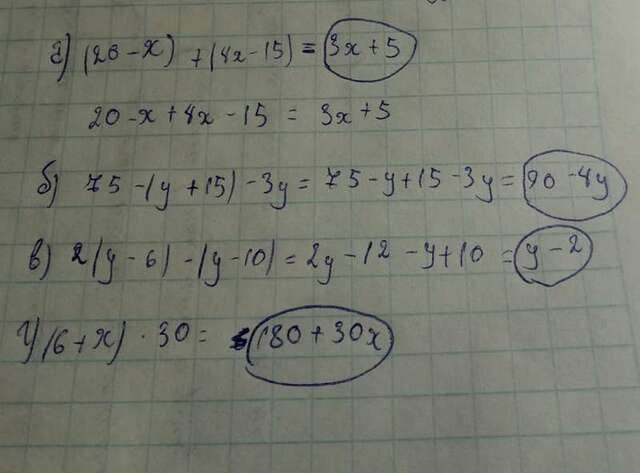 а) (20 - x) + (4x - 15) = 3x + 5
20 - x + 4x - 15 = 3x + 5
б) 75 - (y + 15) - 3y = 75 - y + 15 - 3y = 90 - 4y
в) 2(y - 6) - (y - 10) = 2y - 12 - y + 10 = y - 2
г) (6 + x) · 30 = 180 + 30x